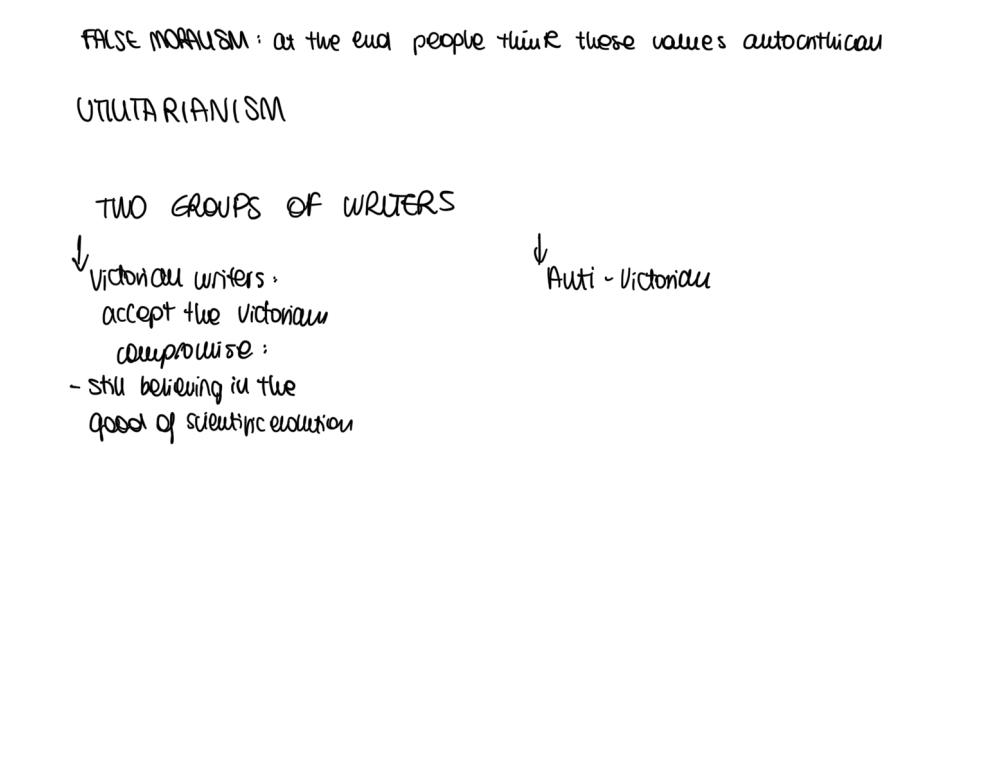 FALSE MORALISM: at the end people think these values
UTILITARIANISM
TWO GROUPS OF WRITERS
↓ ↓
Victorian writers: Anti-Victorian
accept the Victorian
compromise:
- still believing in the
good of scientific evolution